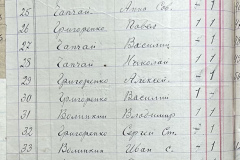 25 Гапчай Анна Сав. - 1
26 Григоренко Павел 1 1
27 Гапчай Василий - 1
28 Гапчай Николай 1
29 Григоренко Алексей - 1
30 Григоренко Василий 1
31 Волошкин Владимир 1 1
32 Григоренко Сергей Ст. - 1
33 Иван с. - 1